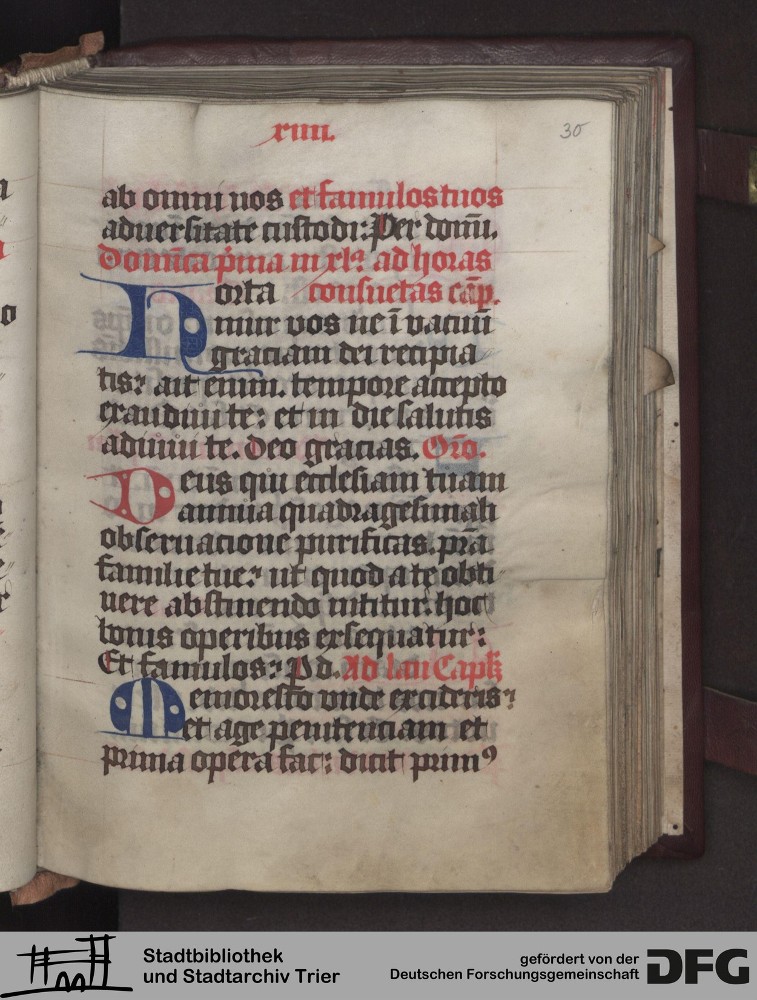 xxiiii.
30
ab omni nos et famulos tuos
aduersitate custodi: Per domī.
Domīca p̄ma in xl.ª ad horas
Horta consuetas cap̄.
mur vos ne ī vacuū
graciam dei recipia
tis: ait enim. tempore accepto
exaudiui te: et in die salutis
adiuui te. deo gracias. Orō.
Deus qui ecclesiam tuam
annua quadragesimali
obseruacione purificas. pr̄a
familie tue: ut quod a te obti
nere abstinendo nititur. hoc
bonis operibus exsequatur:
Et famulos: P d. Ad lau Capl̄
Memoresto vnde excideris:
et age penitenciam et
prima opera fac: dicit primꝰ
Stadtbibliothek
und Stadtarchiv Trier
gefördert von der
Deutschen Forschungsgemeinschaft DFG